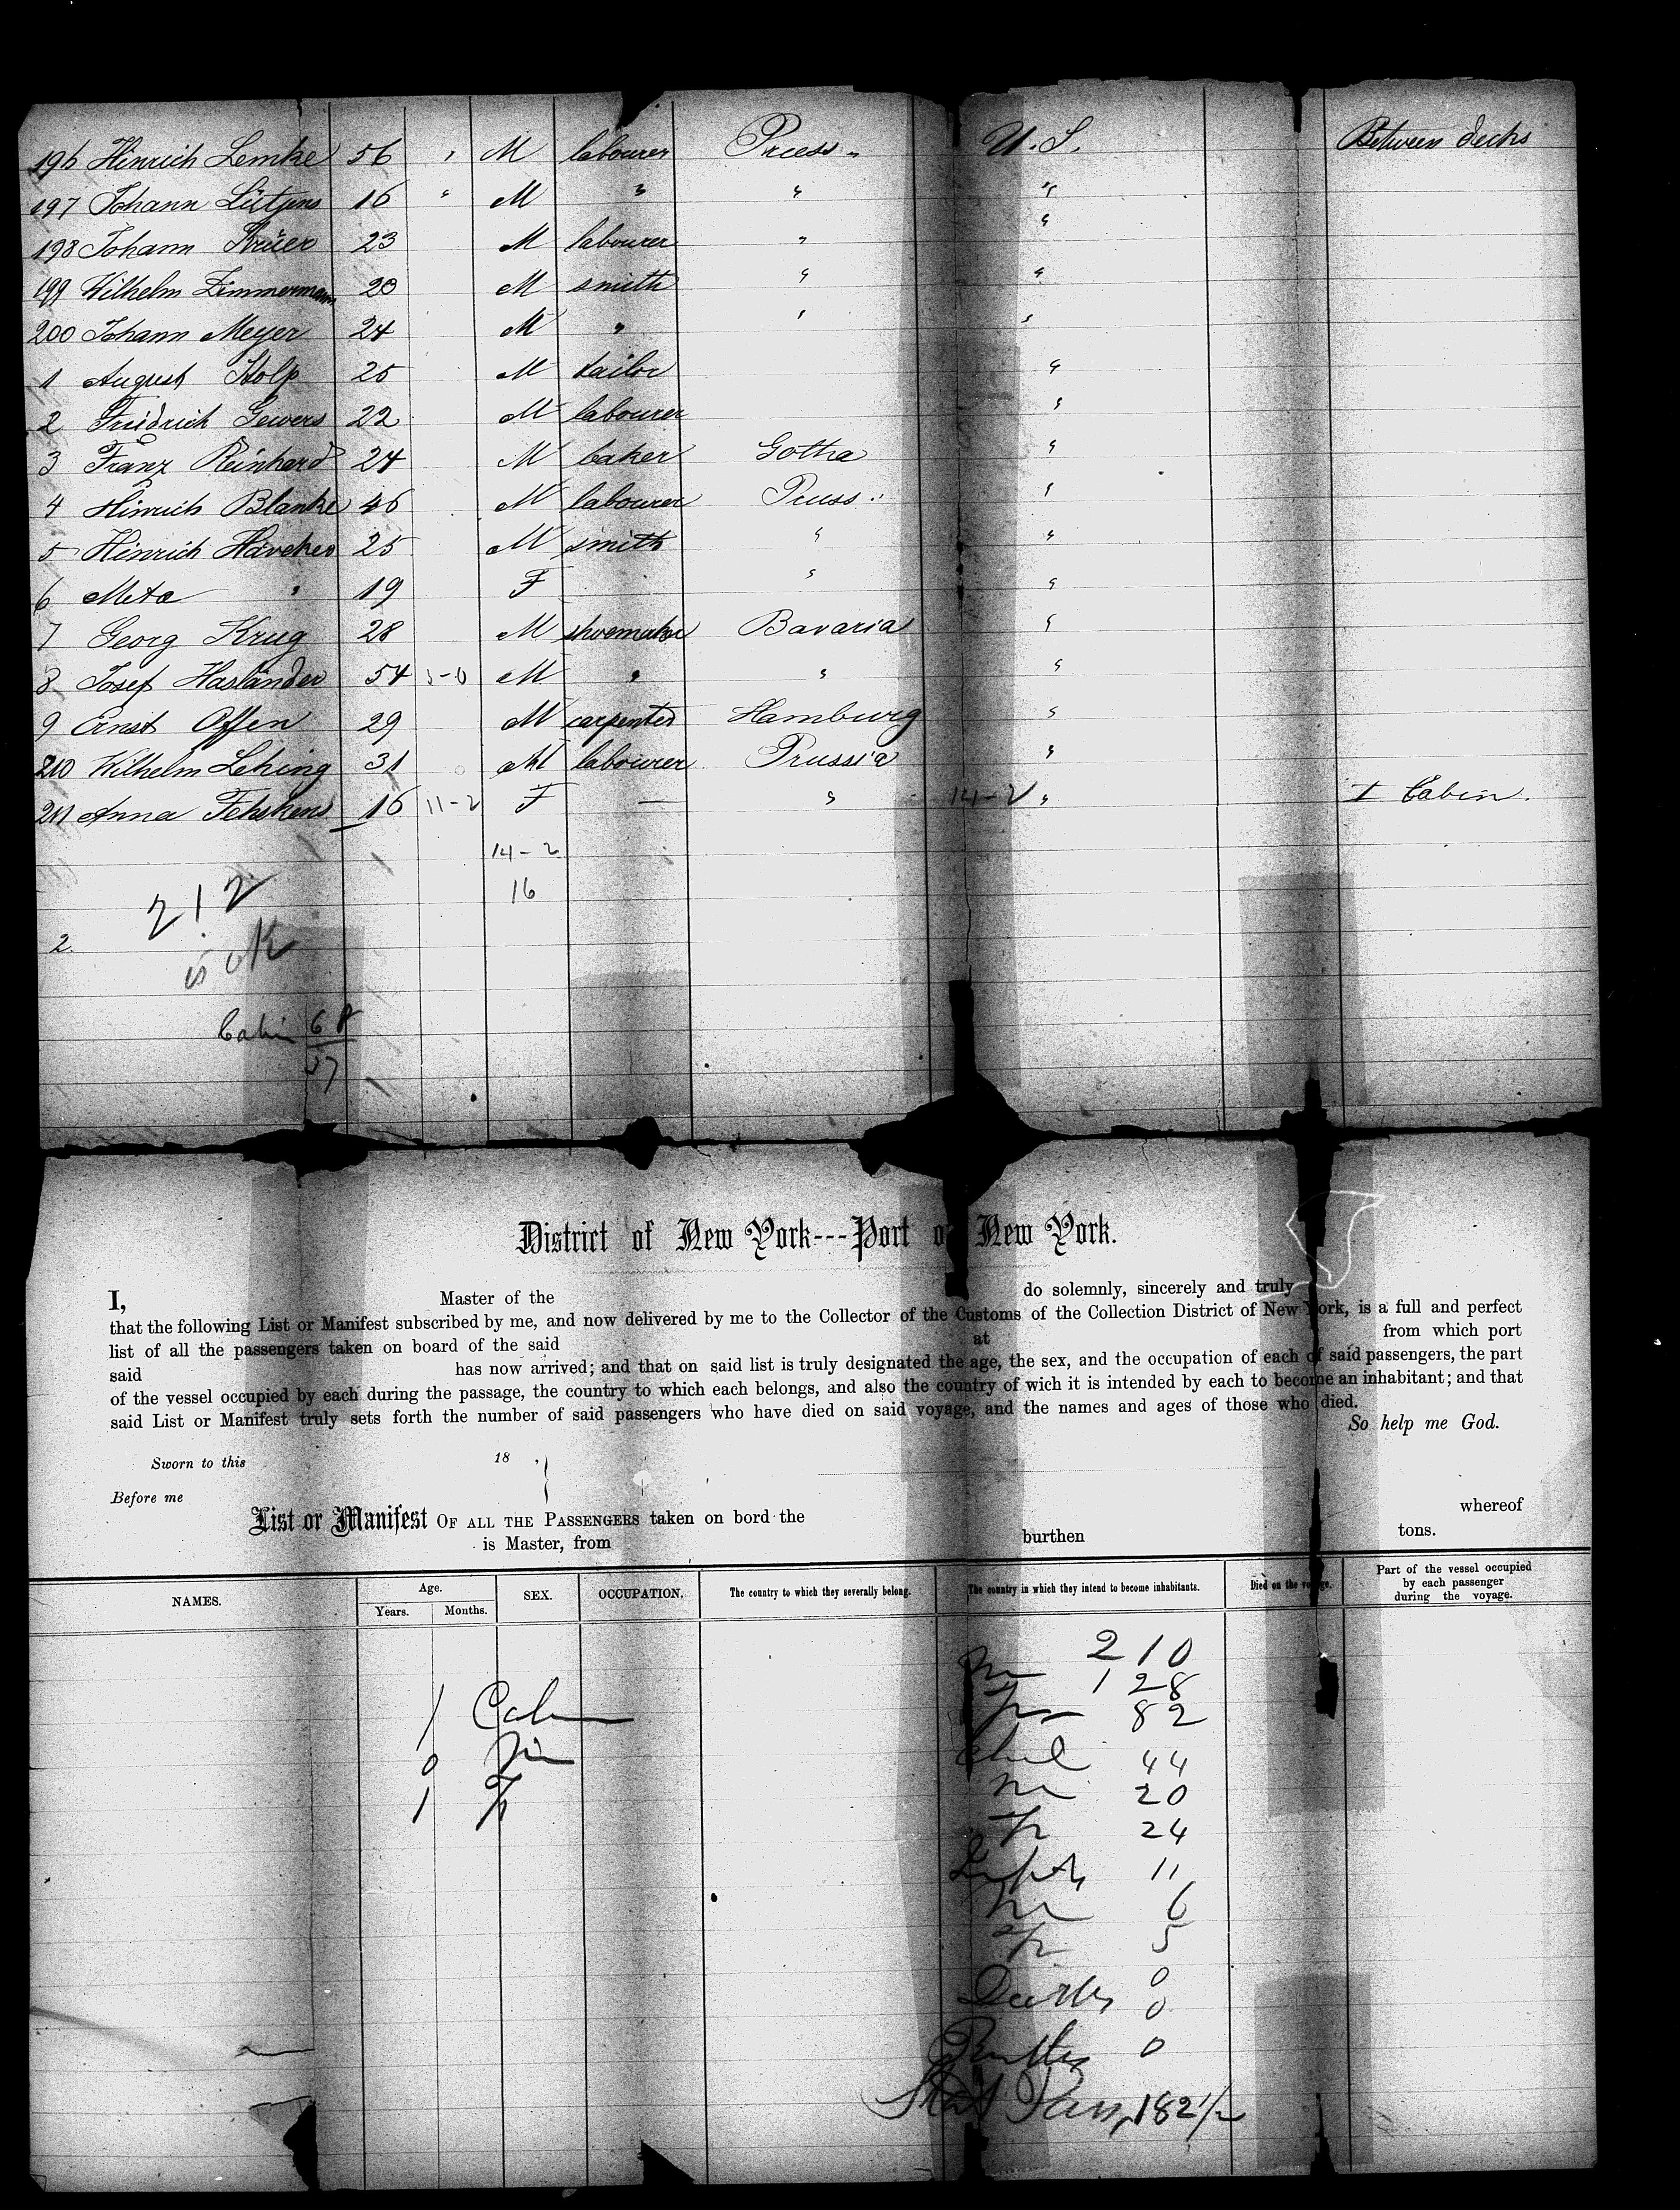 196 Hinrich Lemke 56 " M labourer Preuss " U. S. Between decks
197 Johann Lütjens 16 " M " " "
198 Johann Krüer 23 M labourer " "
199 Wilhelm Zimmermann 20 M smith " "
200 Johann Meyer 24 M " " "
1 August Holp 25 M tailor "
2 Friedrich Gewers 22 M labourer "
3 Franz Reinherd 24 M baker Gotha "
4 Hinrich Blanke 46 M labourer Preuss "
5 Hinrich Häveker 25 M smith " "
6 Meta " 19 F " "
7 Georg Krug 28 M shoemaker Bavaria "
8 Josef Hasländer 54 M " " "
9 Ernst Offen 29 M carpenter Hamburg "
210 Wilhelm Lehing 31 M labourer Prussia "
211 Anna Fehskens 16 11-2 F — " 14-2 " I Cabin.
14-2
212 16
2. is OK
Cabin 68
District of New York---Port of New York.
I, Master of the do solemnly, sincerely and truly
that the following List or Manifest subscribed by me, and now delivered by me to the Collector of the Customs of the Collection District of New York, is a full and perfect
list of all the passengers taken on board of the said at from which port
said has now arrived; and that on said list is truly designated the age, the sex, and the occupation of each of said passengers, the part
of the vessel occupied by each during the passage, the country to which each belongs, and also the country of wich it is intended by each to become an inhabitant; and that
said List or Manifest truly sets forth the number of said passengers who have died on said voyage, and the names and ages of those who died.
So help me God.
Sworn to this 18 ,
Before me
List or Manifest OF ALL THE PASSENGERS taken on bord the whereof
is Master, from burthen tons.
NAMES. Age. Years. Months. SEX. OCCUPATION. The country to which they severally belong. The country in which they intend to become inhabitants. Died on the voyage. Part of the vessel occupied by each passenger during the voyage.
210
m 128
1 Cabin F 82
0 m Chil 44
1 F m 20
F 24
Infts 11
m 6
F 5
0
Deaths 0
Births 0
Stat Pass 182 1/2